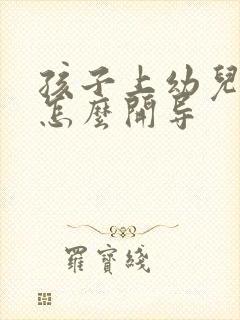 孩子上幼兒
怎麼開导
羅寶綫